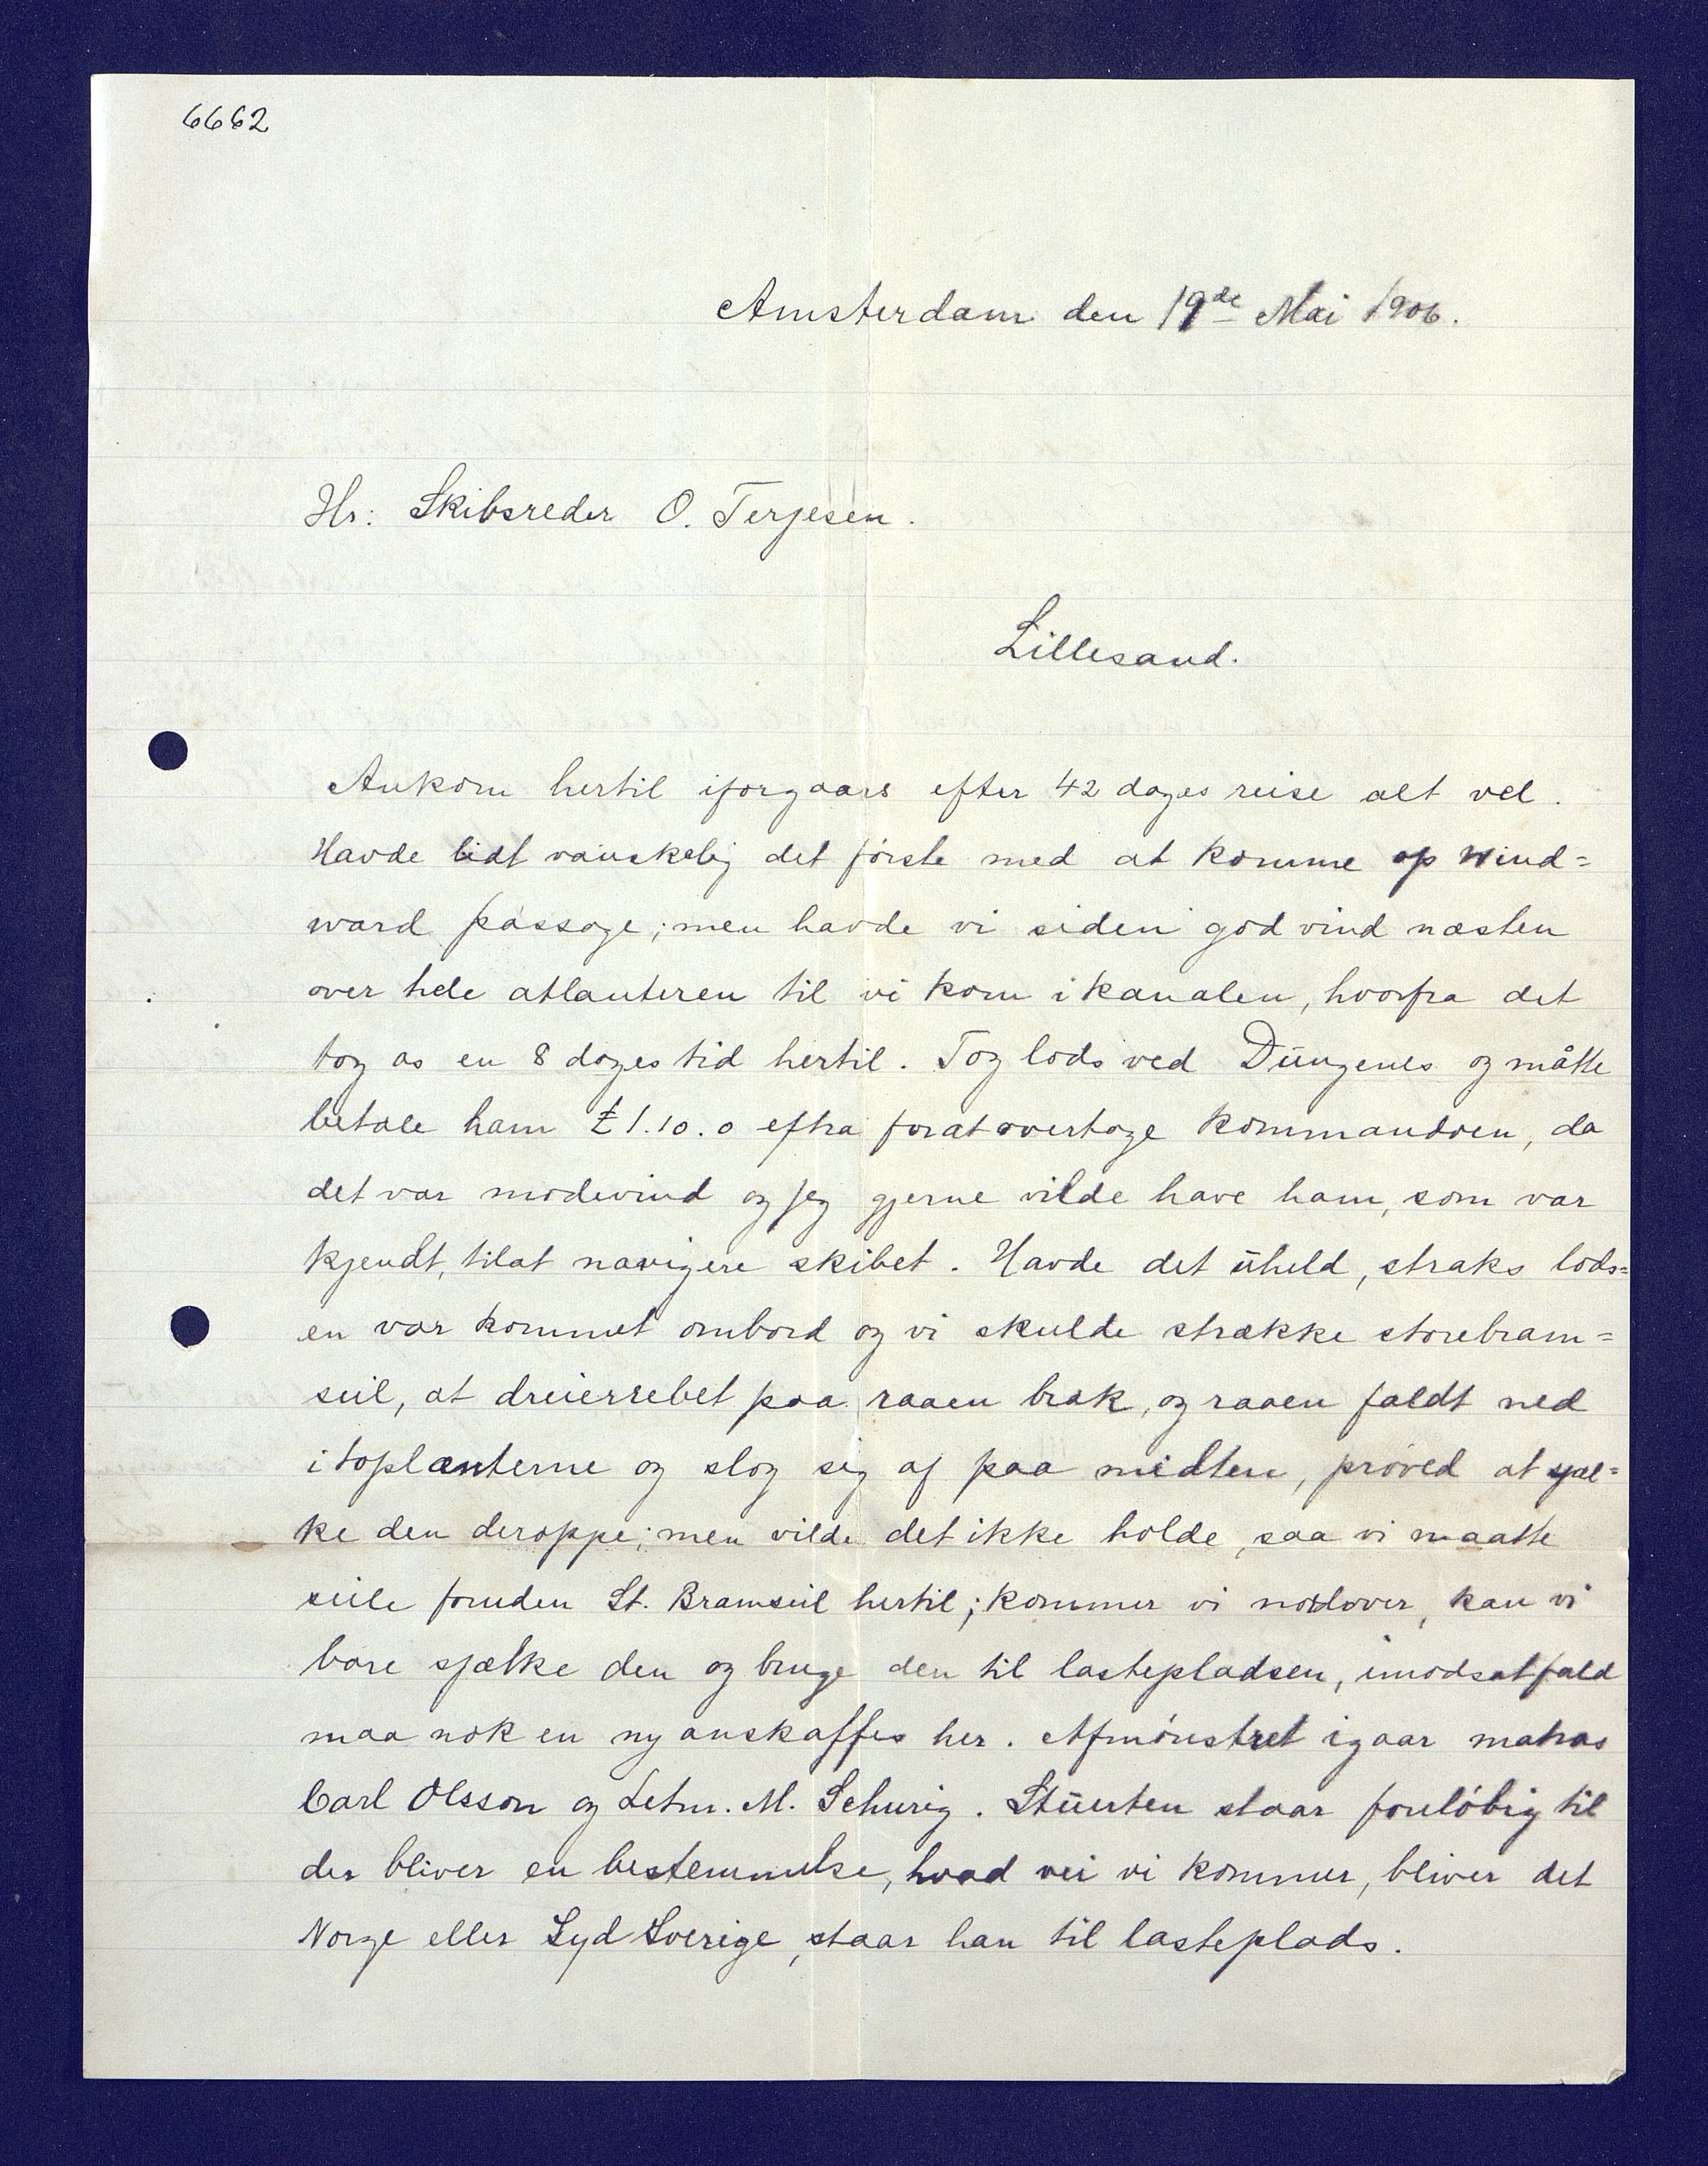 6662
Amsterdam den 19de Mai 1906.
Hr: Skibsreder O. Terjesen.
Lillesand.
Ankom hertil iforgaars efter 42 dages reise alt vel.
Havde lidt vanskelig det første med at komme op Wind=
ward passage; men havde vi siden god vind næsten
over hele atlanteren til vi kom i kanalen, hvorfra det
tog os en 8 dages tid hertil. Tog lods ved Düngenes og måtte
betale ham £1.10.0 extra forat overtage kommandoen, da
det var modevind og jeg gjerne vilde have ham, som var
kjendt, tilat navigere skibet. Havde det üheld, straks lods=
en var kommet ombord og vi skulde strække storebram=
seil, at dreierrebet paa raaen brak, og raaen faldt ned
i toplænterne og slog sig af paa midten, prøved at spjæl=
ke den deroppe; men vilde det ikke holde, saa vi maatte
seile foruden St. Bramseil hertil; kommer vi nordover, kan vi
bare spjælke den og bruge den til lastepladsen, imodsatfald
maa nok en ny anskaffes her. Afmønstret igaar matros
Carl Olsson og Letm. M. Schurig. Stüerten staar foreløbig til
der bliver en bestemmelse, hvad vei vi kommer, bliver det
Norge eller Syd Sverige, staar han til lasteplads.